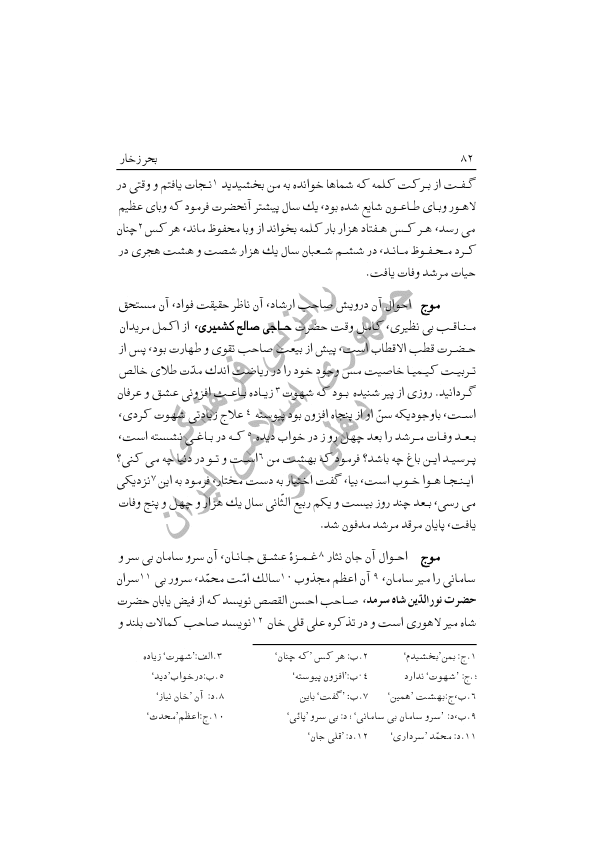 ۸۲ بحر زخار
گفت از برکت کلمه که شماها خوانده به من بخشیدید ۱ نجات یافتم و وقتی در
لاهور وبای طاعون شایع شده بود، یك سال پیشتر آنحضرت فرمود که وبای عظیم
می رسد، هر کس هفتاد هزار بار کلمه بخواند از وبا محفوظ ماند، هر کس ۲ چنان
کرد محفوظ ماند، در ششم شعبان سال یك هزار شصت و هشت هجری در
حیات مرشد وفات یافت.
موج احوال آن درویش صاحب ارشاد، آن ناظر حقیقت فواد، آن مستحق
مناقب بی نظیری، کامل وقت حضرت حاجی صالح کشمیری، از اکمل مریدان
حضرت قطب الاقطاب است، پیش از بیعت صاحب تقوی و طهارت بود، پس از
تربیت کیمیا خاصیت مس وجود خود را در ریاضت اندك مدّت طلای خالص
گردانید. روزی از پیر شنیده بود که شهوت ۳ زیاده باعث افزونی عشق و عرفان
است، باوجودیکه سنّ او از پنجاه افزون بود پیوسته ۴ علاج زیادتی شهوت کردی،
بعد وفات مرشد را بعد چهل روز در خواب دیده ۵ که در باغی نشسته است،
پرسید این باغ چه باشد؟ فرمود که بهشت من ۶ است و تو در دنیا چه می کنی؟
اینجا هوا خوب است، بیا، گفت اختیار به دست مختار، فرمود به این ۷ نزدیکی
می رسی، بعد چند روز بیست و یکم ربیع الثّانی سال یك هزار و چهل و پنج وفات
یافت، پایان مرقد مرشد مدفون شد.
موج احوال آن جان نثار ۸ غمزۀ عشق جانان، آن سرو سامان بی سر و
سامانی را میر سامان، ۹ آن اعظم مجذوب ۱۰ سالك امّت محمّد، سرور بی ۱۱ سران
حضرت نورالدّین شاه سرمد، صاحب احسن القصص نویسد که از فیض یابان حضرت
شاه میر لاهوری است و در تذکره علی قلی خان ۱۲ نویسد صاحب کمالات بلند و
۱.ج: بمن'بخشیدم' ۲.ب: هر کس 'که چنان' ۳.الف:'شهرت' زیاده
؛.ج: 'شهوت' ندارد ۴.ب:'افزون پیوسته' ۵.ب:درخواب'دید'
۶.ب،ج:بهشت 'همین' ۷.ب: 'گفت' باین ۸.د: آن 'خان نیاز'
۹.ب،د: 'سرو سامان بی سامانی' ؛ د: بی سرو 'پائی' ۱۰.ج:اعظم'محدث'
۱۱.د: محمّد 'سرداری' ۱۲.د:'قلی جان'
رایزنی فرهنگی
جمهوری اسلامی ایران
دهلی نو